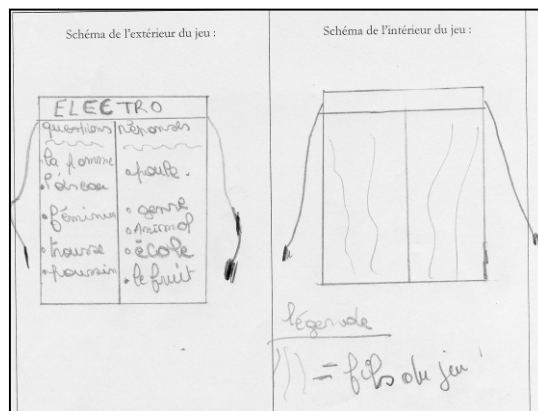 Schéma de l'extérieur du jeu :
ELECTRO
questions réponses
la pomme
l'oiseau
poule
féminin
genre
Animal
trousse
école
poussin
le fruit
Schéma de l'intérieur du jeu :
légende
= fils du jeu